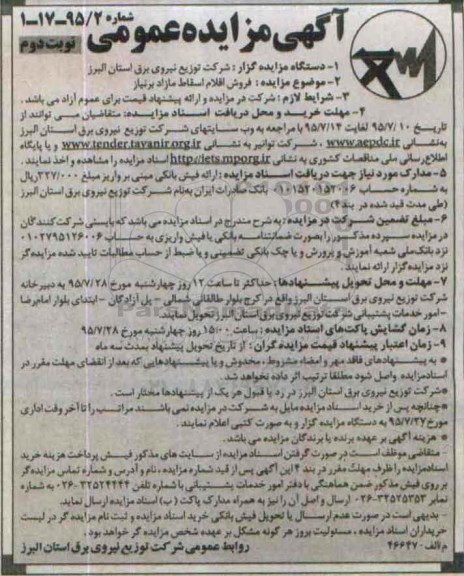 آگهی مزایده عمومی شماره ۹۵/۲-۱۷-۱
نوبت دوم
۱- دستگاه مزایده گزار : شرکت توزیع نیروی برق استان البرز
۲- موضوع مزایده : فروش اقلام اسقاط مازاد برنیاز
۳- شرایط لازم : شرکت در مزایده و ارائه پیشنهاد قیمت برای عموم آزاد می باشد .
۴- مهلت خرید و محل دریافت اسناد مزایده: متقاضیان می توانند از
تاریخ ۹۵/۷/۱۰ لغایت ۹۵/۷/۱۴ با مراجعه به وب سایتهای شرکت توزیع نیروی برق استان البرز
به نشانی www.aepdc.ir ، شرکت توانیر به نشانی www.tender.tavanir.org.ir و یا پایگاه
اطلاع رسانی ملی مناقصات کشوری به نشانی http://iets.mporg.ir اسناد مزایده را مشاهده و اخذ نمایند .
۵- مدارک مورد نیاز جهت دریافت اسناد مزایده : ارائه فیش بانکی مبنی بر واریز مبلغ ۳۲۷/۰۰۰ریال
به شماره حساب بانک صادرات ایران به نام شرکت توزیع نیروی برق استان البرز
(طی مدت قید شده در بند ۴)
۶- مبلغ تضمین شرکت در مزایده : به شرح مندرج در اسناد مزایده می باشد که بایستی شرکت کنندگان
در مزایده سپرده مذکور را بصورت ضمانتنامه بانکی یا فیش واریزی به حساب ۰۱۰۲۷۹۵۱۲۶۰۰۶
نزد بانک ملی شعبه آموزش و پرورش و یا چک بانکی تضمینی و یا ضبط از حساب مطالبات تایید شده مزایده گر
نزد مزایده گزار ارائه نمایند.
۷- مهلت و محل تحویل پیشنهادها: حداکثر تا ساعت ۱۲ روز چهارشنبه مورخ ۹۵/۷/۲۸ به دبیرخانه
شرکت توزیع نیروی برق استان البرز واقع در کرج بلوار طالقانی شمالی - پل آزادگان - ابتدای بلوار امام رضا
- امور خدمات پشتیبانی شرکت توزیع نیروی برق استان البرز تحویل نمایند.
۸- زمان گشایش پاکت های اسناد مزایده : ساعت ۱۵:۰۰ روز چهارشنبه مورخ ۹۵/۷/۲۸
۹- زمان اعتبار پیشنهاد قیمت مزایده گران : از تاریخ تحویل پیشنهاد بمدت سه ماه
* به پیشنهادهای فاقد مهر و امضاء مشروط ، مخدوش و یا پیشنهادهایی که بعد از انقضای مهلت مقرر در
اسناد مزایده واصل شود مطلقا ترتیب اثر داده نخواهد شد.
*شرکت توزیع نیروی برق استان البرز در رد یا قبول هر یک از پیشنهادها مختار است .
*چنانچه پس از خرید اسناد مزایده مایل به شرکت در مزایده نمی باشند مراتب را تا آخر وقت اداری
مورخ ۹۵/۷/۲۷ به دستگاه مزایده گزار و به صورت کتبی اعلام نمایند .
* هزینه آگهی بر عهده برنده یا برندگان مزایده می باشد .
- متقاضی موظف است در صورت گرفتن اسناد مزایده از سایت های مذکور فیش پرداخت هزینه خرید
اسناد مزایده را ظرف مهلت مقرر در بند ۴ این آگهی پس از قید شماره مزایده ، نام و آدرس و شماره تماس مزایده گر
بر روی فیش مذکور ضمن هماهنگی با دفتر امور خدمات پشتیبانی با شماره تلفن ۳۲۵۲۴۴۴۴-۰۲۶ به شماره
نمابر ۳۴۵۲۵۳۵۳-۰۲۶ ارسال و اصل آن را نیز به همراه مدارک پاکت (ب) اسناد مزایده ارسال نماید.
- بدیهی است در صورت عدم ارسال یا تحویل فیش بانکی خرید اسناد مزایده و ثبت نام مزایده گر در لیست
خریداران اسناد مزایده ، مسئولیت بروز هر گونه مشکل بر عهده شخص مزایده گر خواهد بود .
م/الف ۴۶۶۴۷ روابط عمومی شرکت توزیع نیروی برق استان البرز